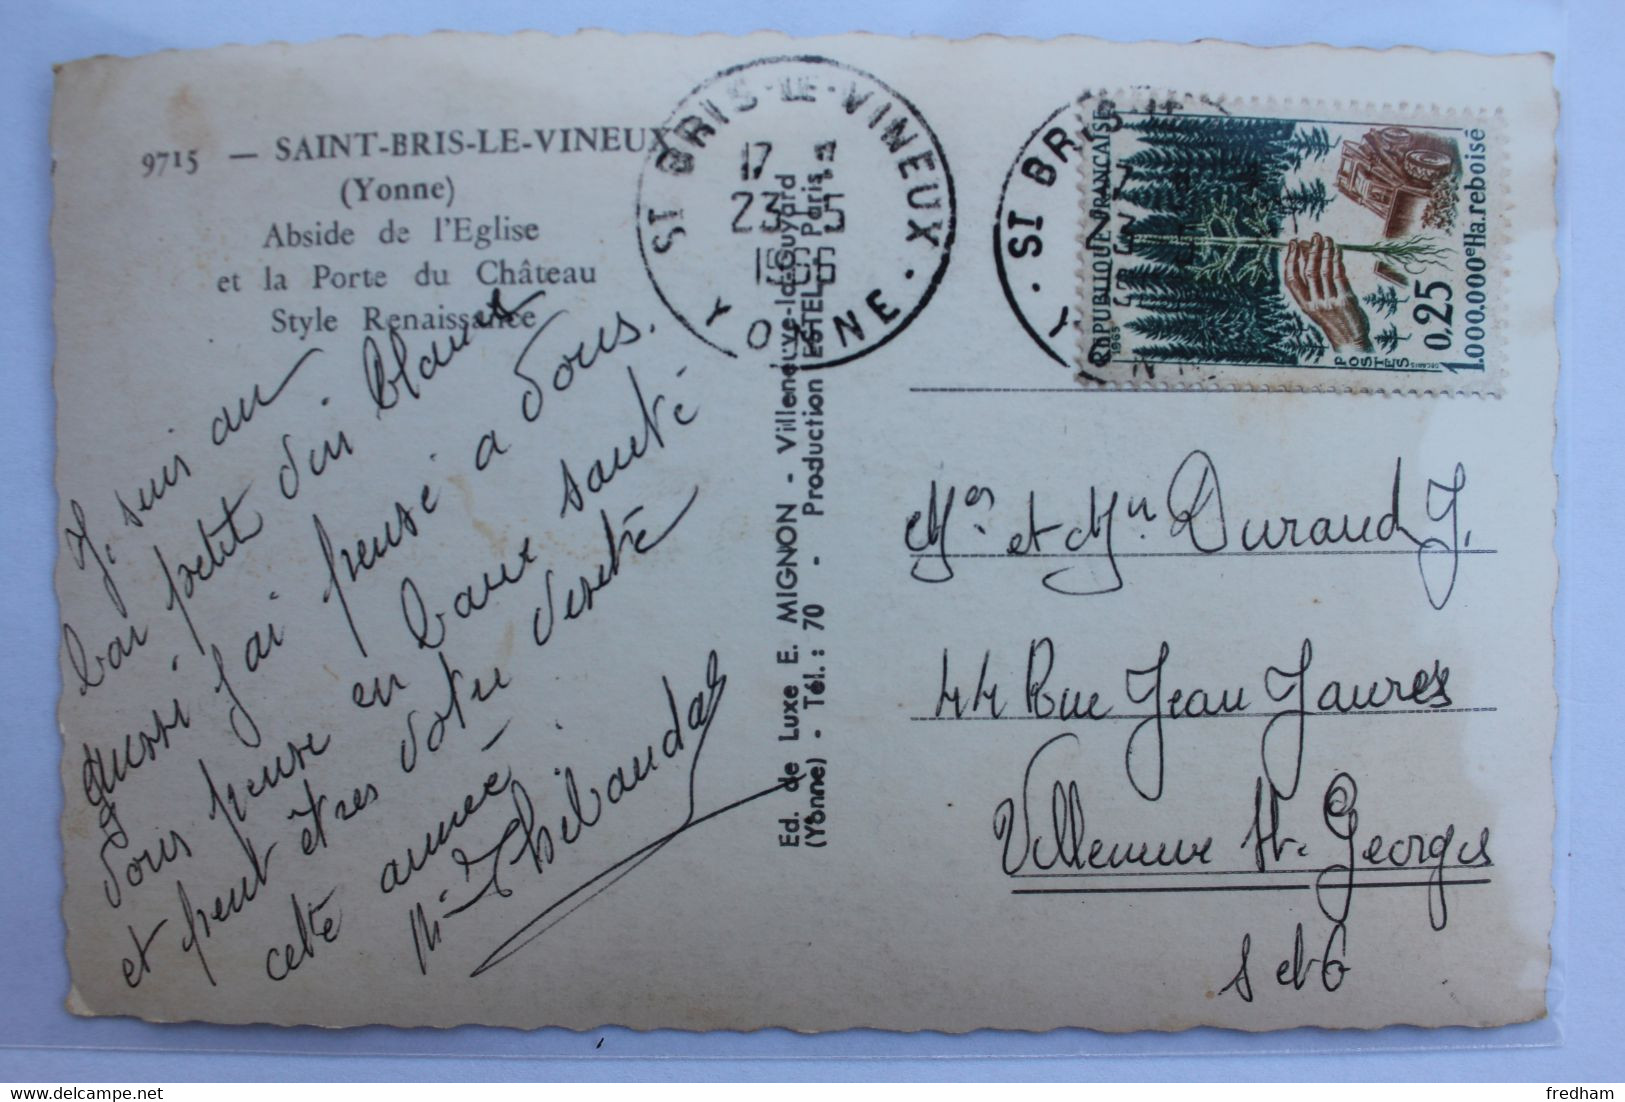 9715 — SAINT-BRIS-LE-VINEUX
(Yonne)
Abside de l'Eglise
et la Porte du Château
Style Renaissance
J. suis au
bon petit vin blanc
aussi j'ai pensé a vous.
vous pense en bonne santé
et peut êtres votre
cette année.
M. Thibauda
ST BRIS-LE-VINEUX
17
23-5
1966
YONNE
Ed. de Luxe E. MIGNON - Villeneuve-la-Guyard
(Yonne) - Tél. : 70 - Production ESTEL, Paris
ST BRIS
REPUBLIQUE FRANÇAISE
1965
POSTES
DECARIS
0,25
1.000.000e Ha.reboisé
Mr et Mm Durand J.
44 Rue Jean Jaures
Villeneuve St. Georges
S et O
fredham